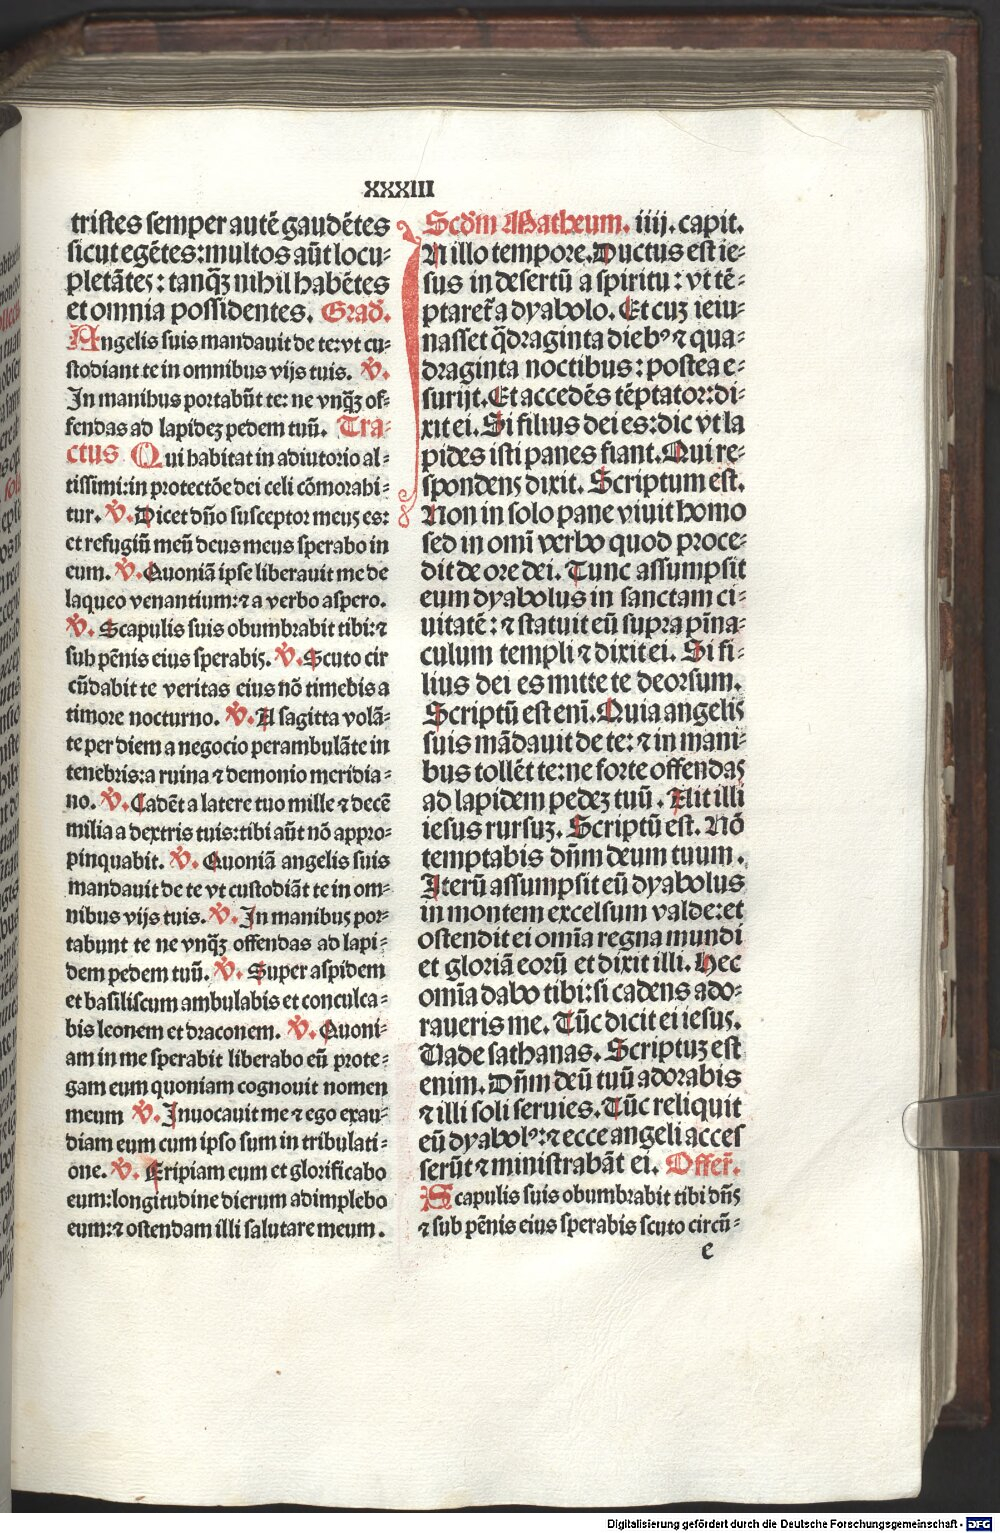 XXXIII
tristes semper autē gaudētes
sicut egētes: multos aūt locu⸗
pletātes: tanqꝫ nihil habētes
et omnia possidentes. Grad̄.
Angelis suis mandauit de te: vt cu⸗
stodiant te in omnibus vijs tuis. ℣.
In manibus portabūt te: ne vnqꝫ of⸗
fendas ad lapidez pedem tuū. Tra⸗
ctus Qui habitat in adiutorio al⸗
tissimi: in protectōe dei celi cōmorabi⸗
tur. ℣. Dicet dn̄o susceptor meus es:
et refugiū meū deus meus sperabo in
eum. ℣. Quoniā ipse liberauit me de
laqueo venantium: ⁊ a verbo aspero.
℣. Scapulis suis obumbrabit tibi: ⁊
sub pēnis eius sperabis. ℣. Scuto cir
cūdabit te veritas eius nō timebis a
timore nocturno. ℣. A sagitta volā⸗
te per diem a negocio perambulāte in
tenebris: a ruina ⁊ demonio meridia⸗
no. ℣. Cadēt a latere tuo mille ⁊ decē
milia a dextris tuis: tibi aūt nō appro⸗
pinquabit. ℣. Quoniā angelis suis
mandauit de te vt custodiāt te in om⸗
nibus vijs tuis. ℣. In manibus por⸗
tabunt te ne vnqꝫ offendas ad lapi⸗
dem pedem tuū. ℣. Super aspidem
et basiliscum ambulabis et conculca⸗
bis leonem et draconem. ℣. Quoni⸗
am in me sperabit liberabo eū prote⸗
gam eum quoniam cognouit nomen
meum ℣. Inuocauit me ⁊ ego exau⸗
diam eum cum ipso sum in tribulati⸗
one. ℣. Eripiam eum et glorificabo
eum: longitudine dierum adimplebo
eum: ⁊ ostendam illi salutare meum.
Scd̄m Matheum. iiij. capit.
IN illo tempore. Ductus est ie⸗
sus in desertū a spiritu: vt tē⸗
ptaret̄ a dyabolo. Et cuz ieiu⸗
nasset qd̄raginta diebꝰ ⁊ qua⸗
draginta noctibus: postea e⸗
surijt. Et accedēs tēptator: di⸗
xit ei. Si filius dei es: dic vt la
pides isti panes fiant. Qui re⸗
spondens dixit. Scriptum est.
Non in solo pane viuit homo
sed in om̄i verbo quod proce⸗
dit de ore dei. Tunc assumpsit
eum dyabolus in sanctam ci⸗
uitatē: ⁊ statuit eū supra pīna⸗
culum templi ⁊ dixit ei. Si fi⸗
lius dei es mitte te deorsum.
Scriptū est enī. Quia angelis
suis mādauit de te: ⁊ in mani⸗
bus tollēt te: ne forte offendas
ad lapidem pedez tuū. Ait illi
iesus rursuz. Scriptū est. Nō
temptabis dn̄m deum tuum.
Iterū assumpsit eū dyabolus
in montem excelsum valde: et
ostendit ei om̄ia regna mundi
et gloriā eorū et dixit illi. Hec
om̄ia dabo tibi: si cadens ado⸗
raueris me. Tūc dicit ei iesus.
Vade sathanas. Scriptuz est
enim. Dn̄m deū tuū adorabis
⁊ illi soli seruies. Tūc reliquit
eū dyabolꝰ: ⁊ ecce angeli acces
serūt ⁊ ministrabāt ei. Offer̄.
Scapulis suis obumbrabit tibi dn̄s
⁊ sub pēnis eius sperabis scuto circū⸗
e
Digitalisierung gefördert durch die Deutsche Forschungsgemeinschaft - DFG